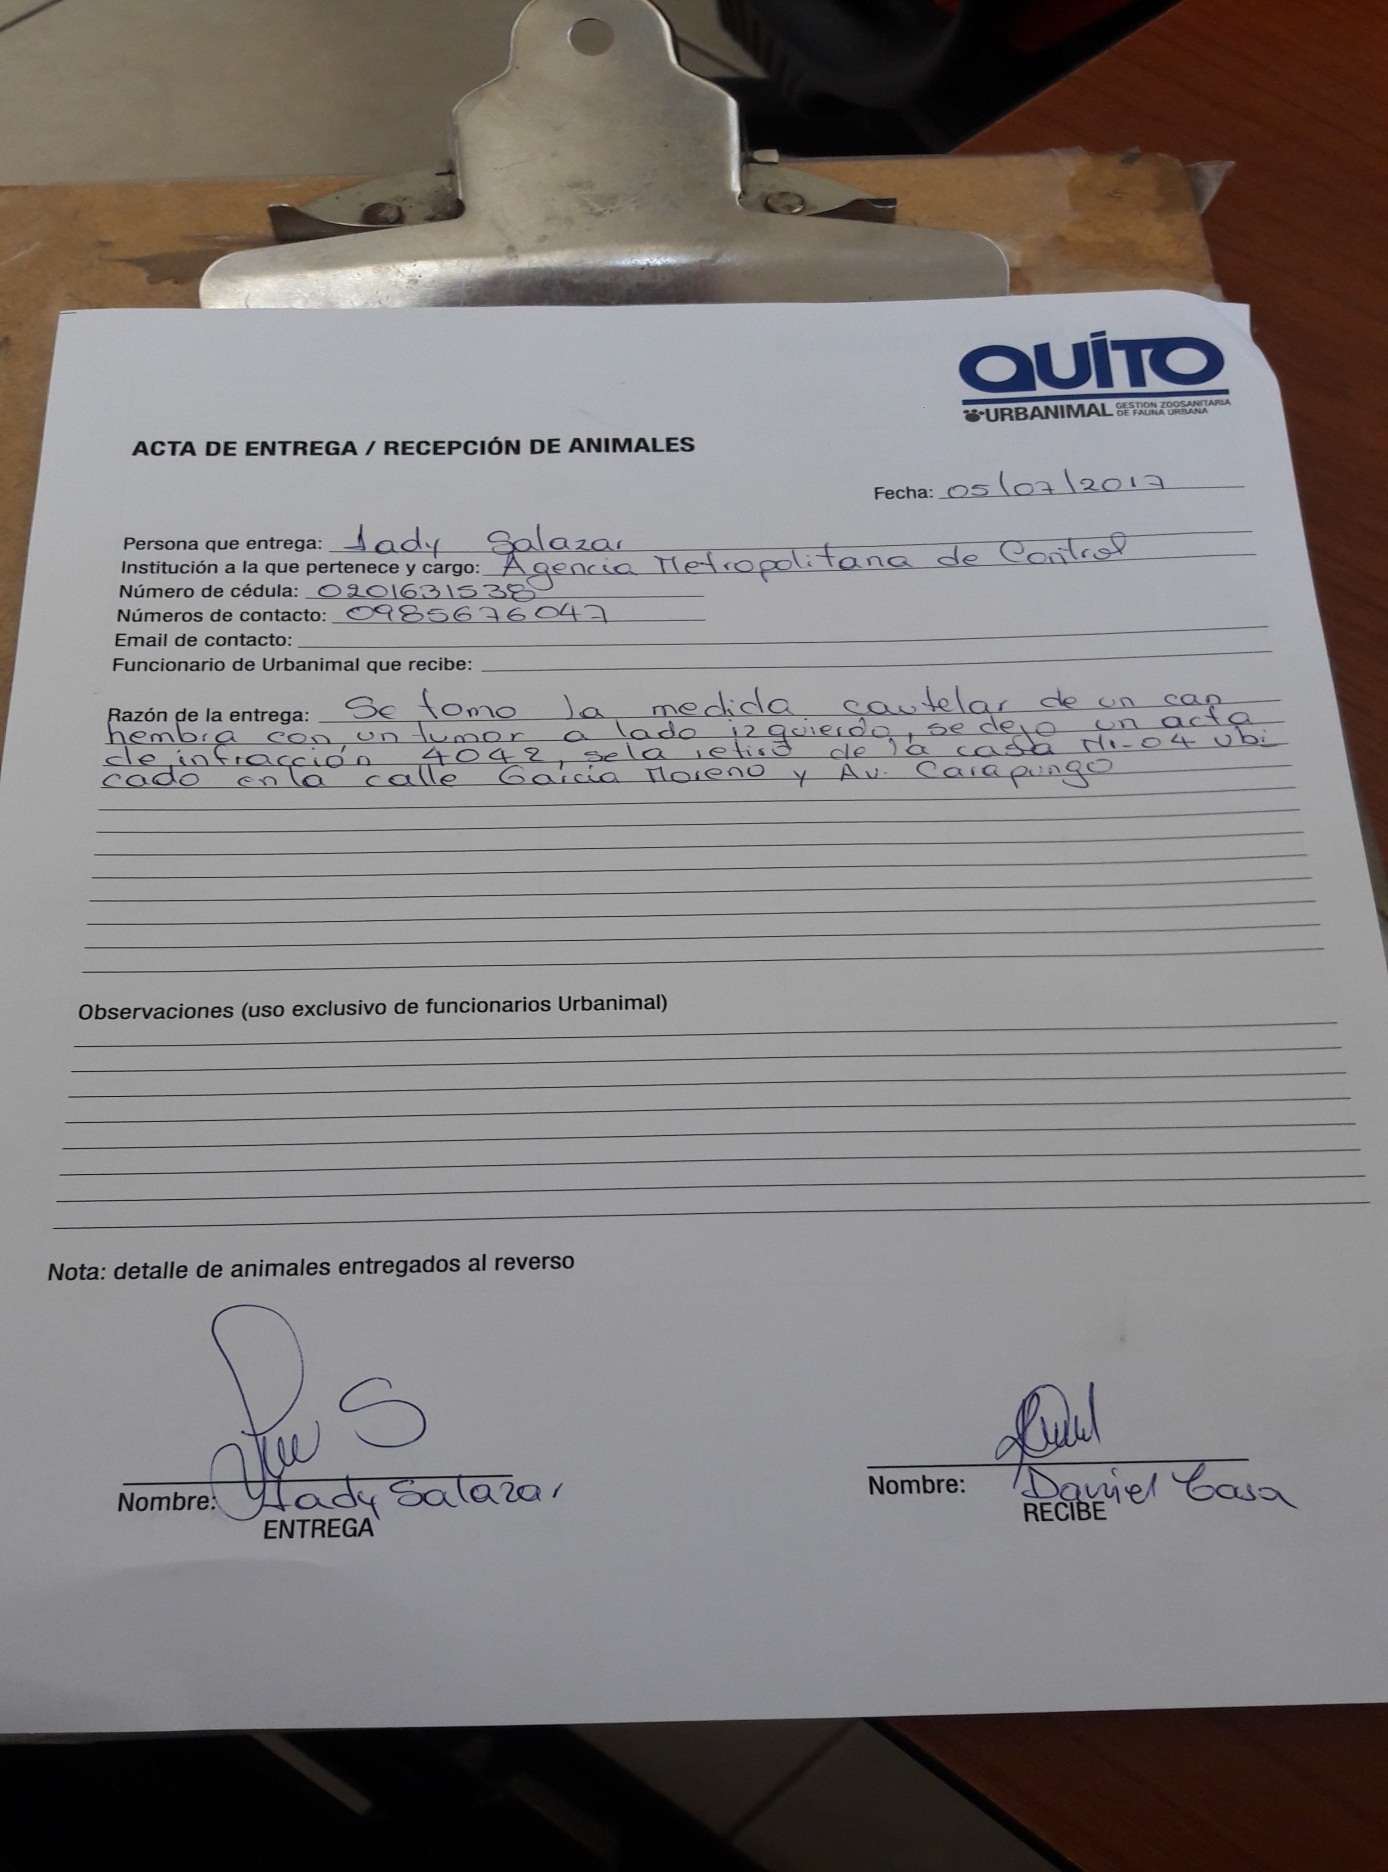 QUÍTO
URBANIMAL GESTION ZOOSANITARIA DE FAUNA URBANA
ACTA DE ENTREGA / RECEPCIÓN DE ANIMALES
Fecha: 05/07/2017
Persona que entrega: Jady Salazar
Institución a la que pertenece y cargo: Agencia Metropolitana de Control
Número de cédula: 0201631538
Números de contacto: 0985676047
Email de contacto:
Funcionario de Urbanimal que recibe:
Razón de la entrega: Se tomo la medida cautelar de un can
hembra con un tumor a lado izquierdo, se dejo un acta
de infracción 4042, sela retiró de la casa N1-04 ubi
cado en la calle García Moreno y Av. Carapungo
Observaciones (uso exclusivo de funcionarios Urbanimal)
Nota: detalle de animales entregados al reverso
Nombre: Jady Salazar
ENTREGA
Nombre: Daniel Casa
RECIBE